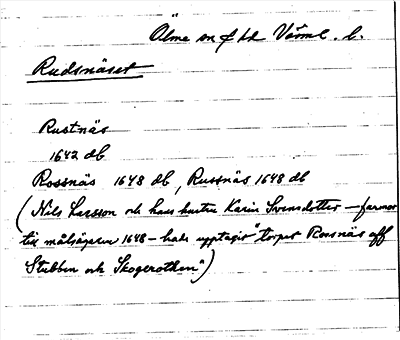 Ölme sn f hd Värml. l.
Rudsnäset
Rustnäs
1642 db
Rossnäs 1648 db, Russnäs 1648 db
(Nils Larsson och hans hustru Karin Svensdotter – farmor
till målsägaren 1648 – hade upptagit "torpet Rossnäs aff
Stubben och Skogerothen")